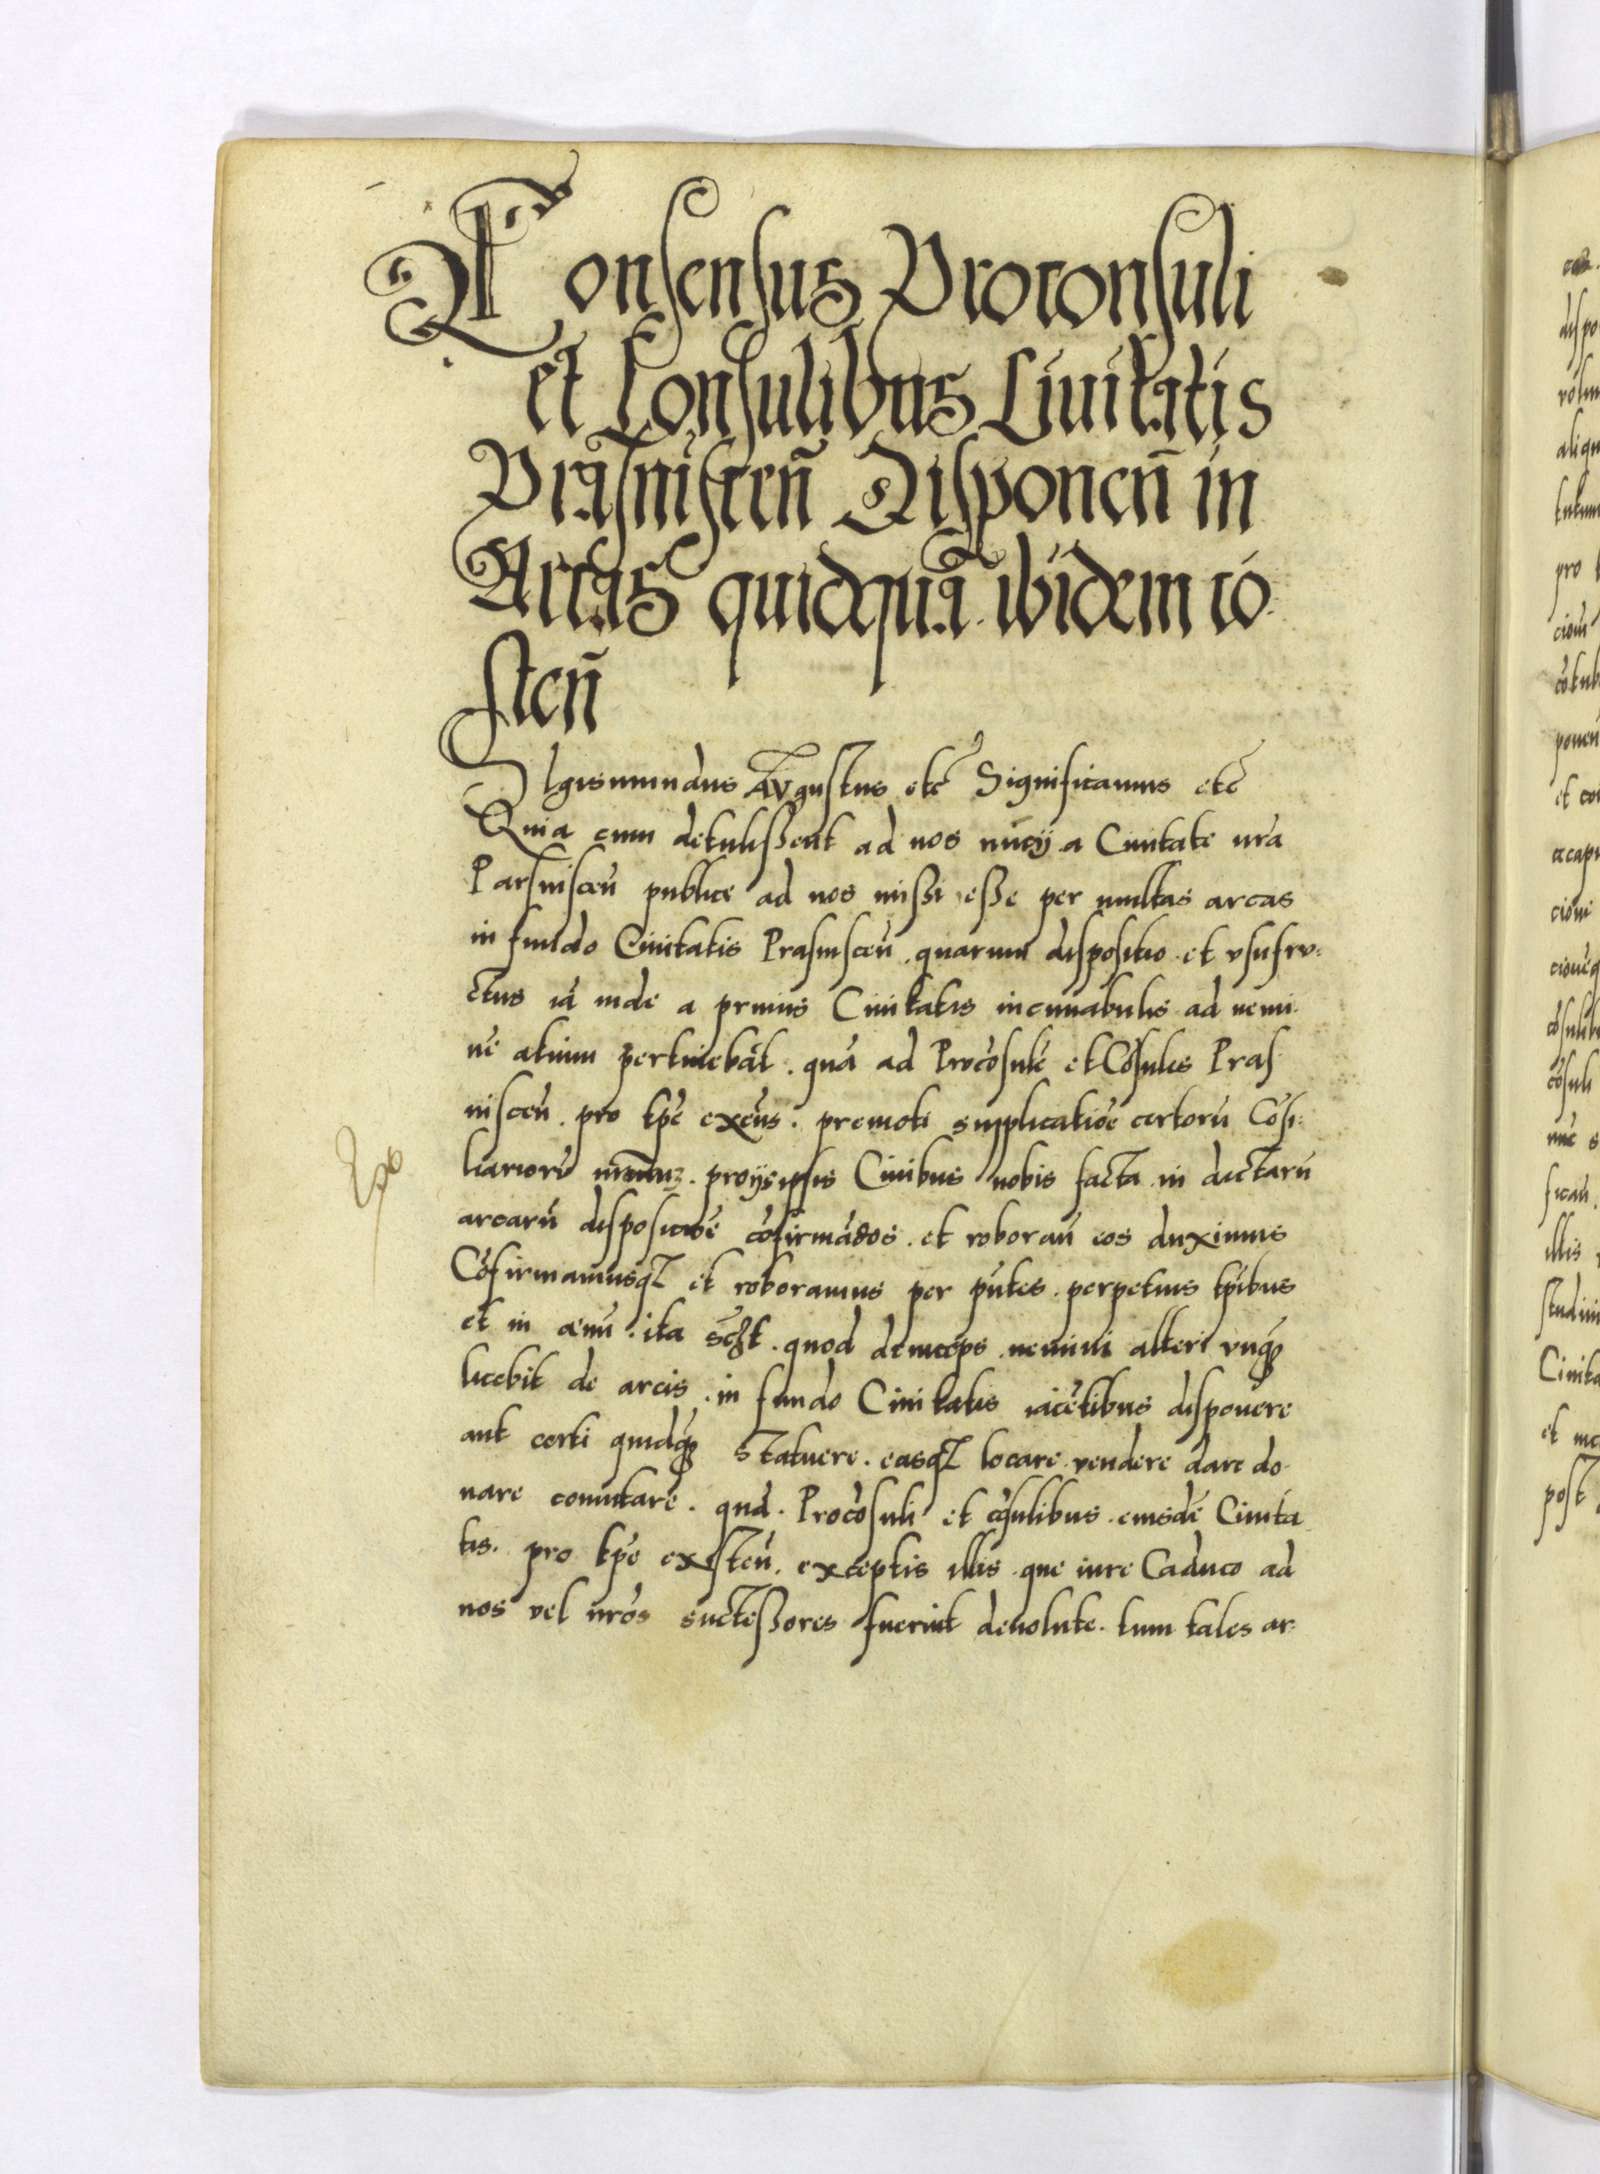 Consensus Proconsuli
et Consulibus Civitatis
Prasniscen̄ Disponen̄ in
Arcas quidquā ibidem cō
sten̄
Sigismundus Augustus etc̄ Significamus etc̄
Quia cum detulissent ad nos nūcij a Civitate nr̄a
Parsniscen̄ publice ad nos missi esse per multas arcas
in fundo Civitatis Prasniscen̄. quarum dispositio et vsusfru-
ctus iā inde a primis Civitatis incunabulis ad nemi-
nē alium pertinebāt. quā ad Procōsulē et Cōsules Pras
niscen̄. pro tp̄e exen̄s. premoti supplicatiōe certorū Cōsi-
liariorū nr̄oruz. pro ijs ipsis Civibus nobis facta in dictarū
arcarū dispositiōe cōfirmādos. et roboran̄ eos duximus
Cōfirmamusq et roboramus per pn̄tes. perpetuis tp̄ibus
et in aevū. ita scꝫt. quod deinceps nemini alteri vnq
licebit de arcis in fundo Civitatis iacētibus disponere
aut certi quidq statuere. easq locare vendere dare do-
nare comutare. quā. Procōsuli et cōsulibus. eiusdē Civita
tis. pro tp̄e existen̄. exceptis illis que iure Caduco ad
nos vel nr̄os successores fuerint devolute. tum tales ar-